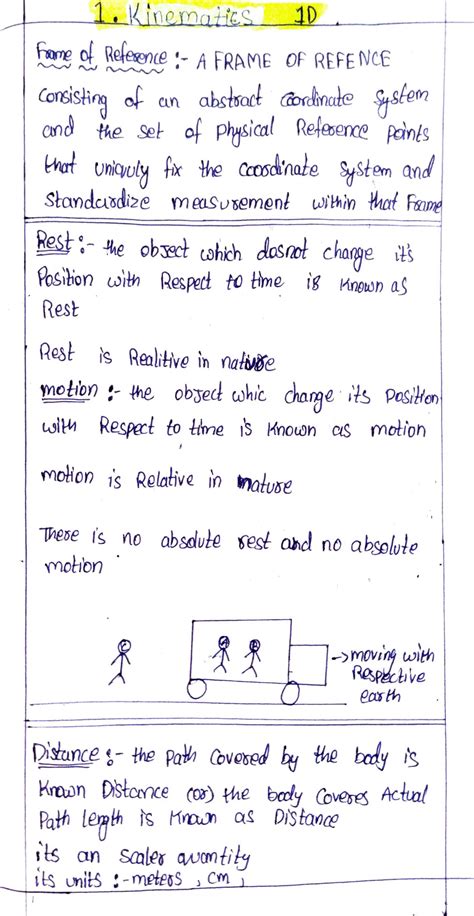 1. Kinematics 1D
Frame of Reference :- A FRAME OF REFENCE
Consisting of an abstract Coordinate System
and the set of Physical Reference Points
that uniquly fix the Coordinate System and
Standardize measurement within that Frame
Rest :- the object which dosnot change it's
Position with Respect to time is Known as
Rest
Rest is Realitive in nature
motion :- the object whic change its Position
with Respect to time is Known as motion
motion is Relative in nature
There is no absolute rest and no absolute
motion
C
A B
→moving with
Respective
earth
Distance :- the Path Covered by the body is
Known Distance (or) the body Coveres Actual
Path length is Known as Distance
its an Scaler quantity
its units :- meters , cm ,